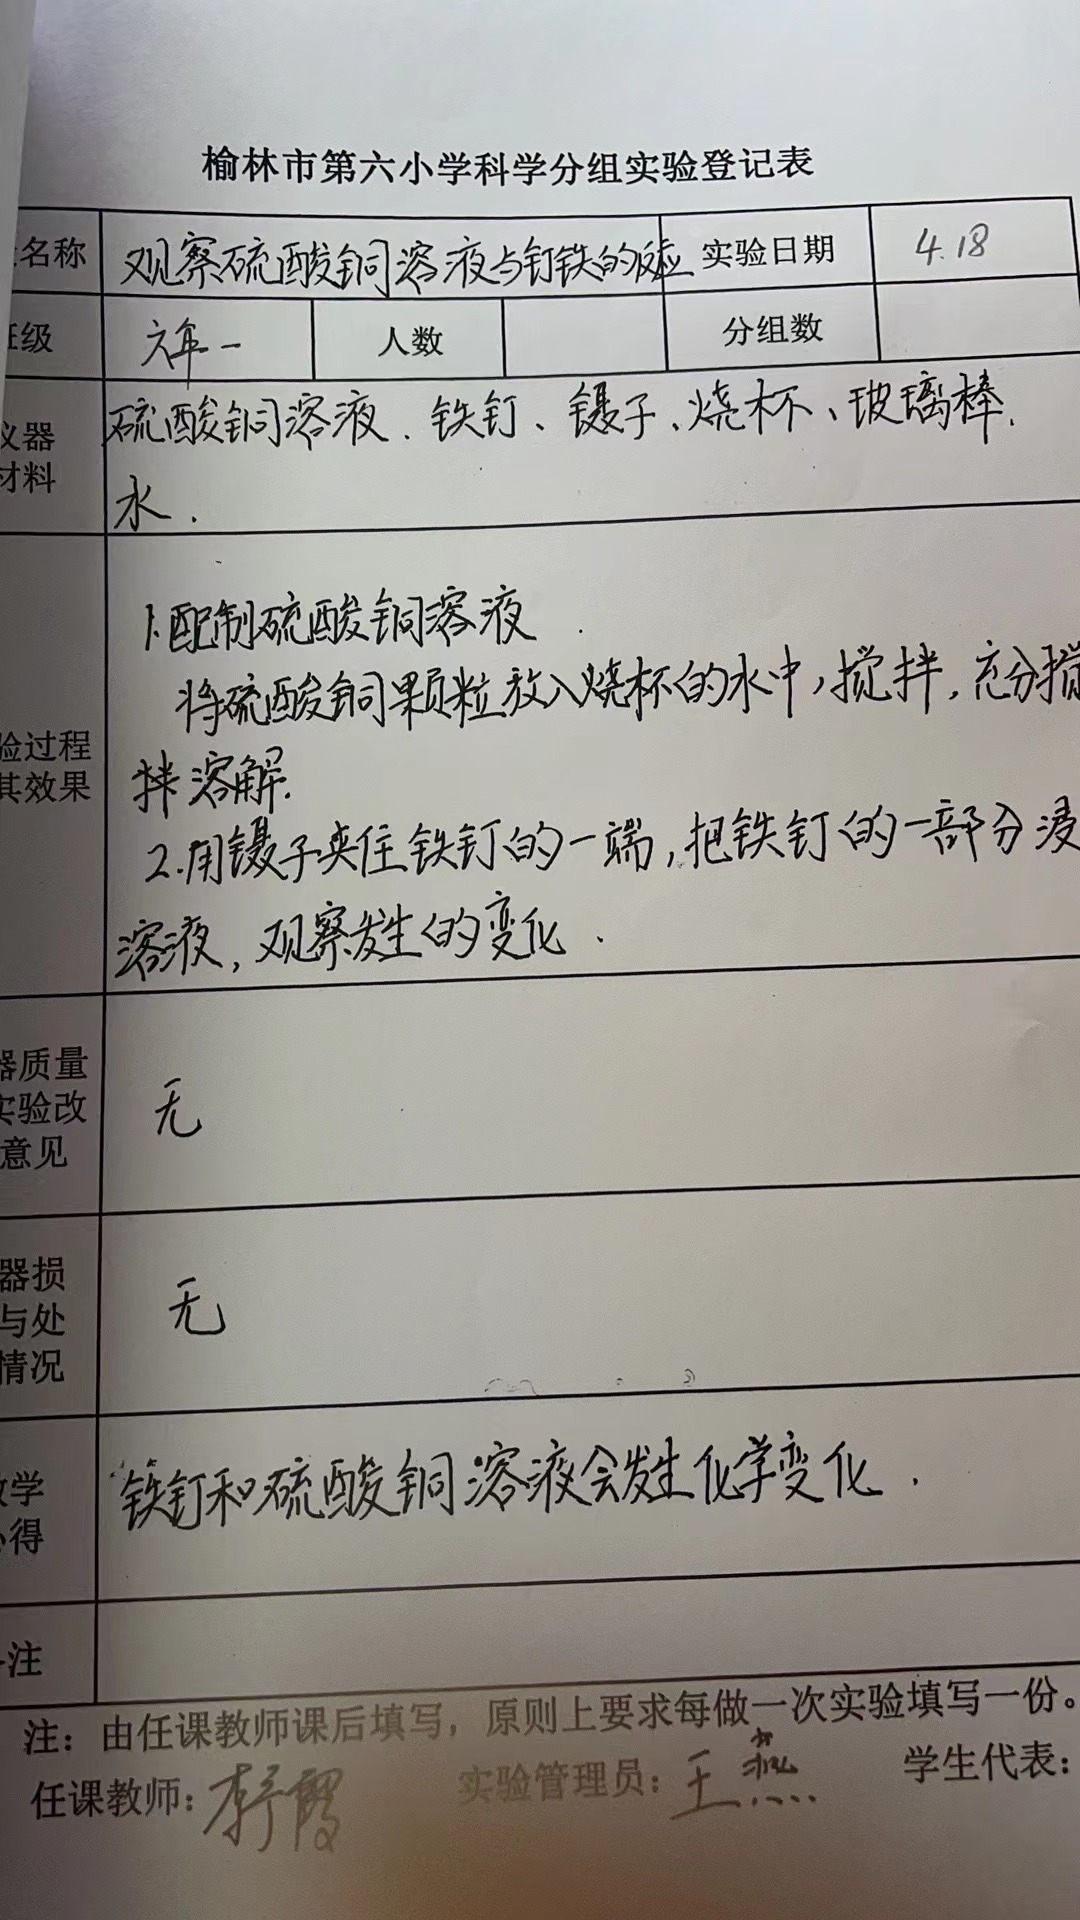 榆林市第六小学科学分组实验登记表
名称 观察硫酸铜溶液与钉铁的反应 实验日期 4.18
班级 六年一 人数 分组数
仪器 硫酸铜溶液、铁钉、镊子、烧杯、玻璃棒.
材料 水.
1.配制硫酸铜溶液.
将硫酸铜颗粒放入烧杯的水中,搅拌,充分搅
验过程
其效果
拌溶解.
2.用镊子夹住铁钉的一端,把铁钉的一部分浸
溶液,观察发生的变化.
器质量
实验改
意见
无
器损
与处
情况
无
教学
心得
铁钉和硫酸铜溶液会发生化学变化.
注
注:由任课教师课后填写,原则上要求每做一次实验填写一份。
任课教师:李霞 实验管理员:王燕 学生代表: